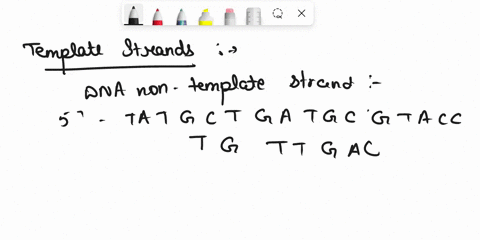 Template Strands :→
DNA non-template strand :-
5' - TAT G C T G A T G C G T A C C
T G T T G A C